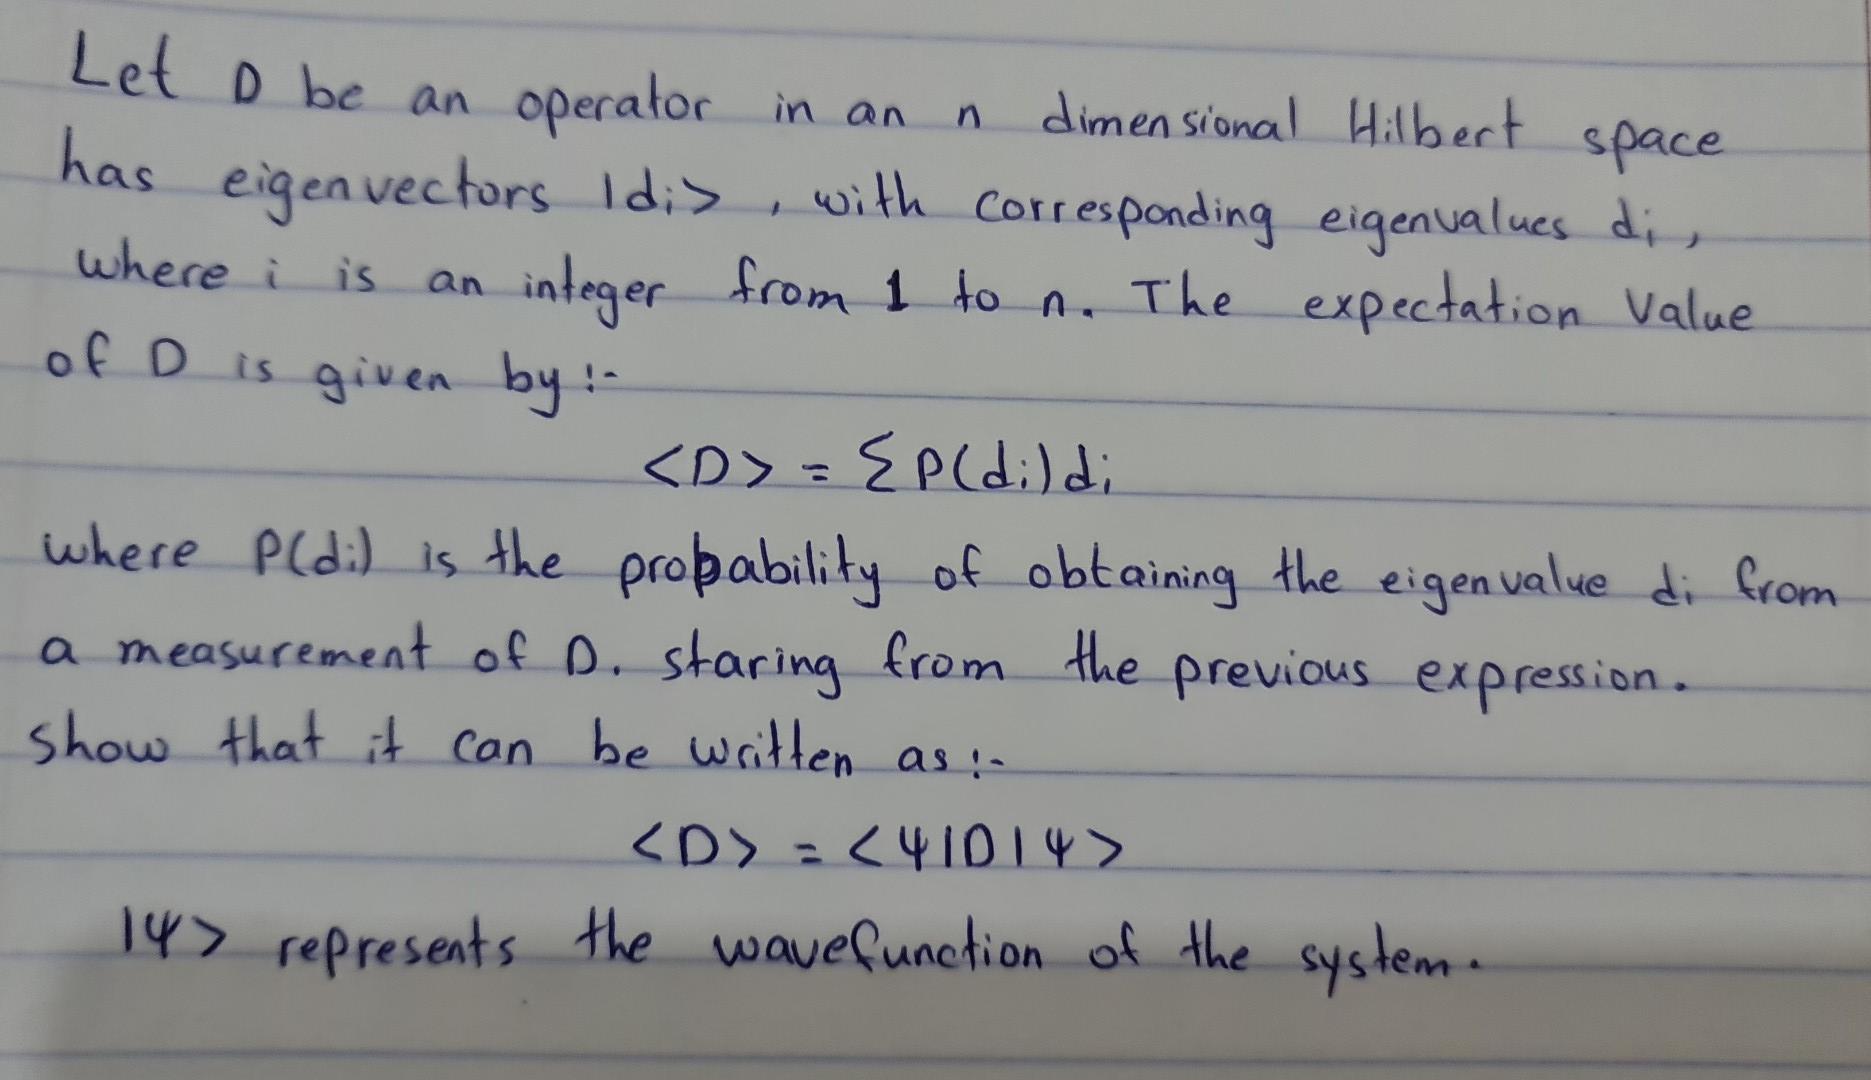 Let D be an operator in an n dimensional Hilbert space
has eigenvectors |di>, with corresponding eigenvalues di,
where i is an integer from 1 to n. The expectation Value
of D is given by :-
<D> = Σ P(di) di
where P(di) is the probability of obtaining the eigenvalue di from
a measurement of D. staring from the previous expression.
show that it can be written as :-
<D> = <ψ|D|ψ>
|ψ> represents the wavefunction of the system.